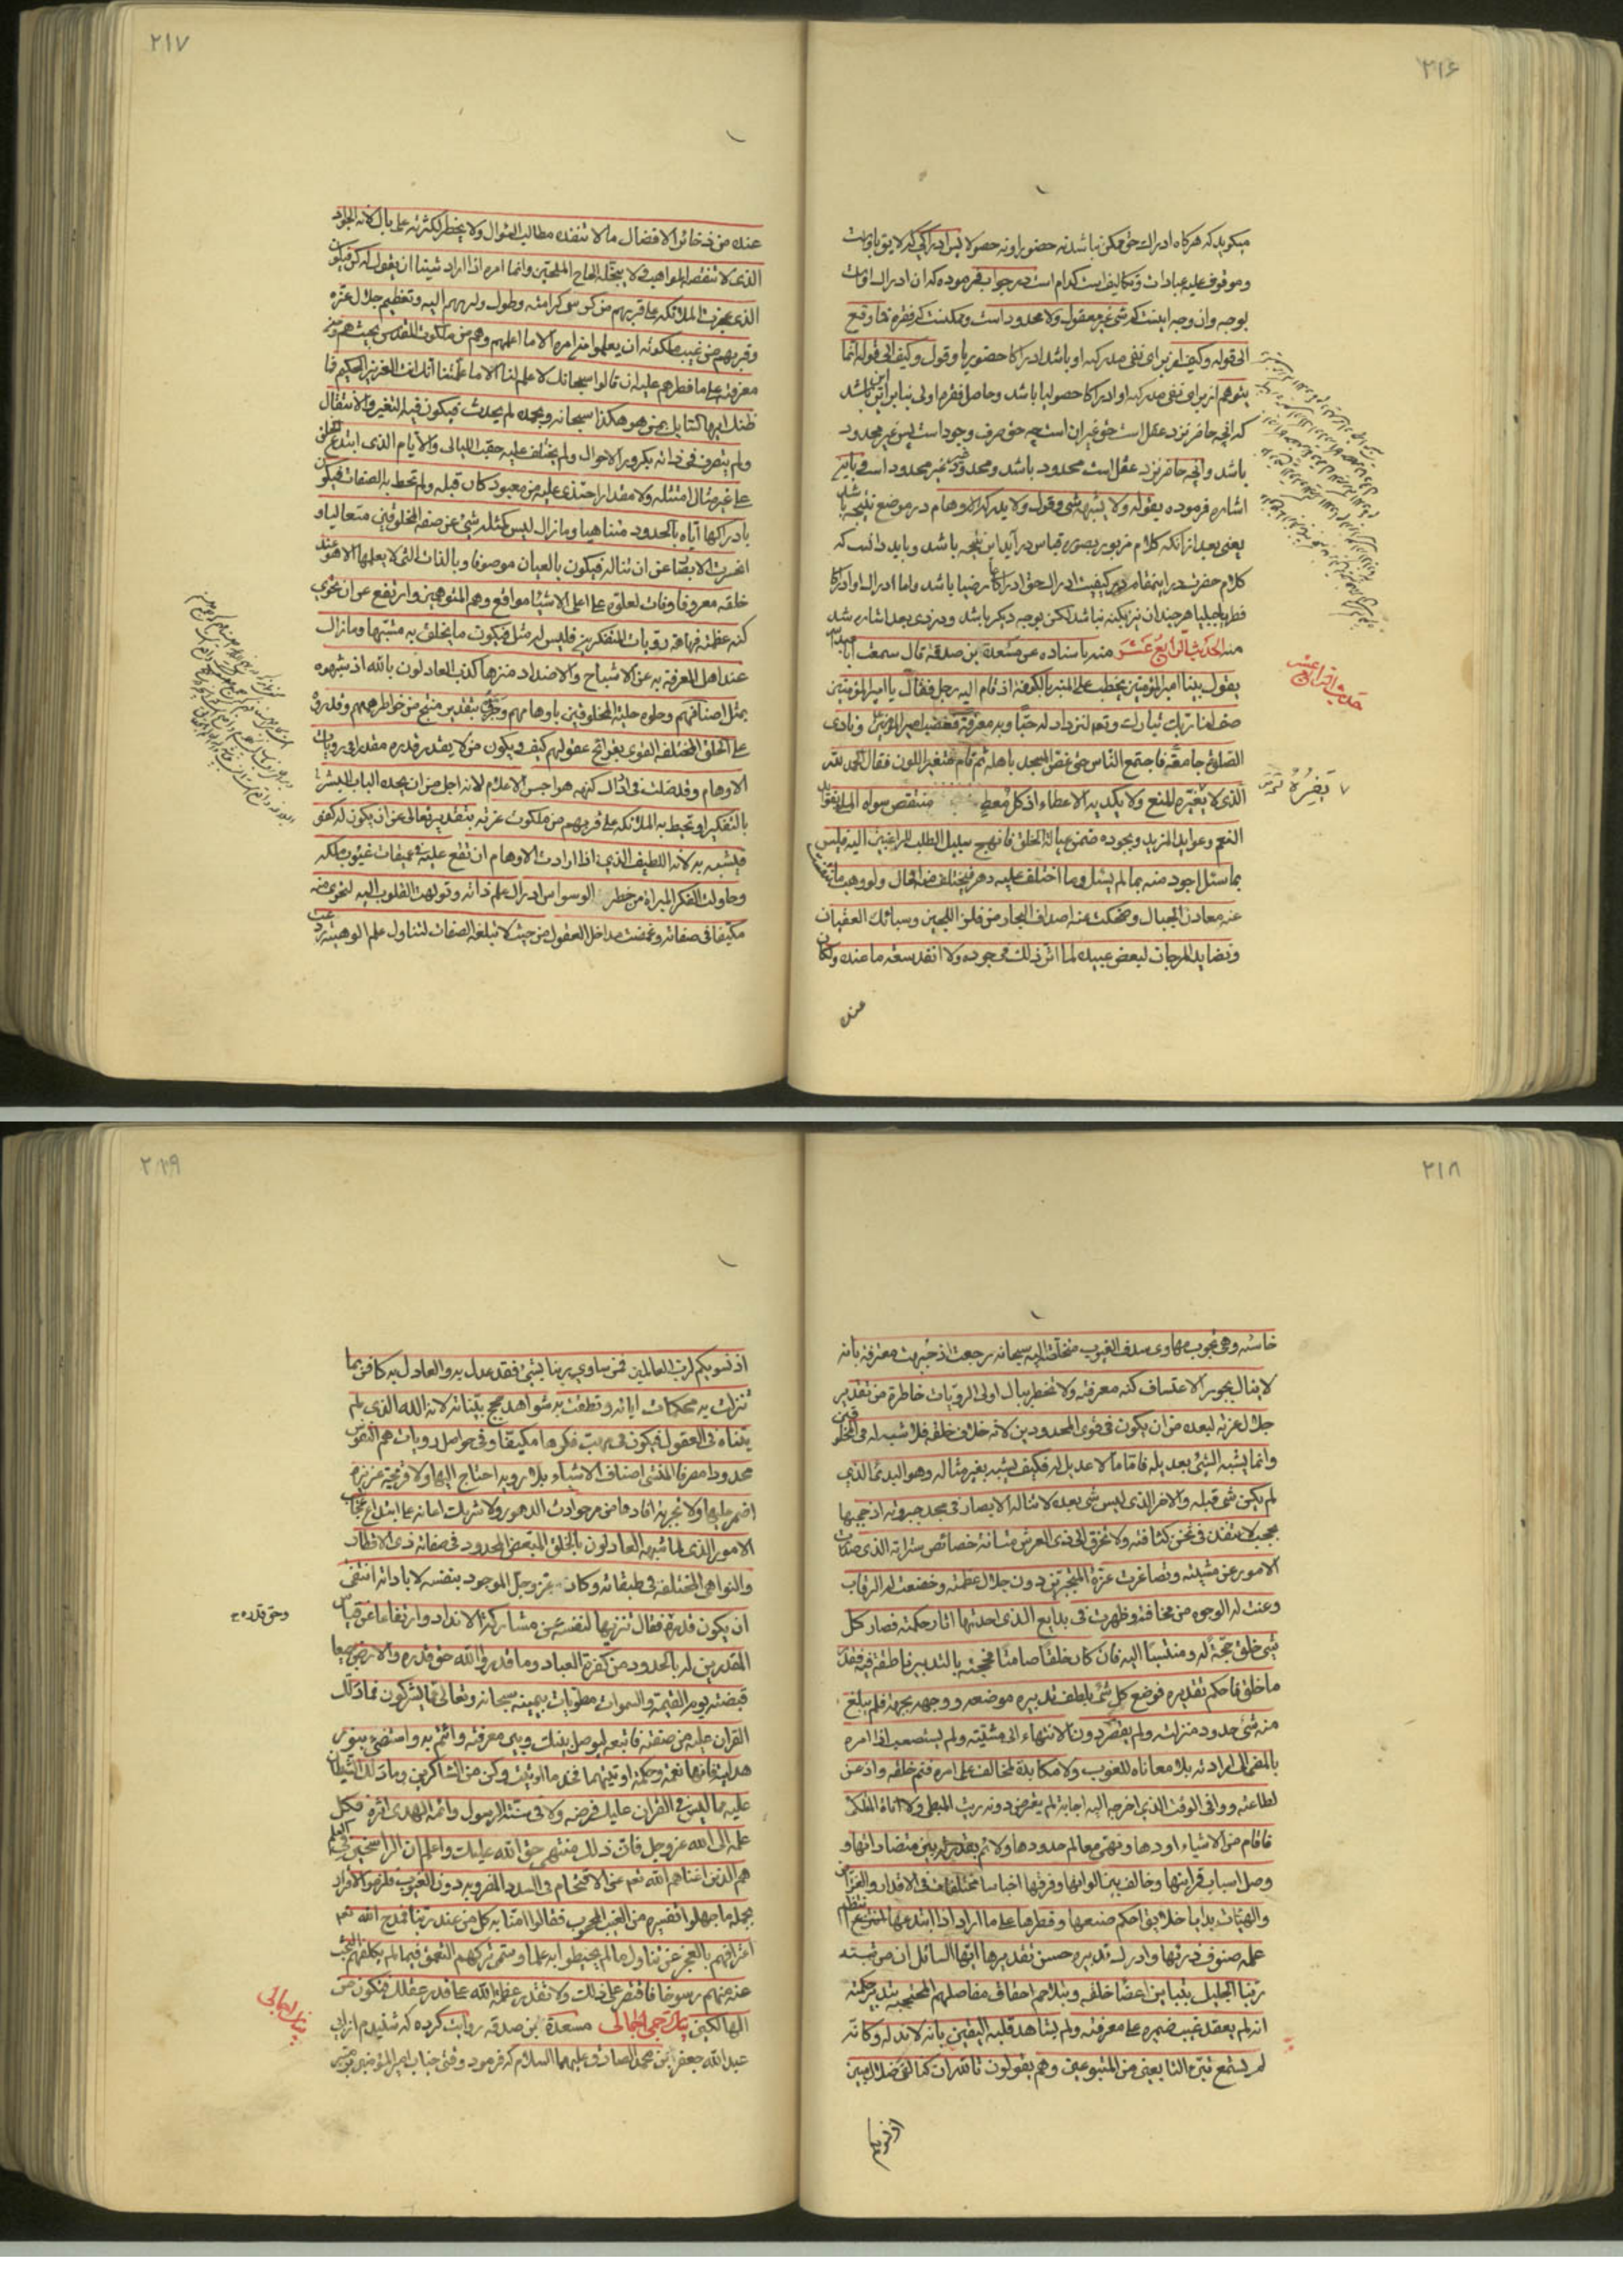 ۲۱۶
میکوید که هرکاه ادراک حق ممکن نباشد نه حضورا و نه حصولا پس ادراکی که لایق باوست
و موقوف علیه عبادات و تکالیف است کدام است در جواب فرموده که ان ادراک اوست
بوجه و ان وجه اینست که شی غیر معقول و لا محدود است و ممکنست که فقره فما وقع
الی قوله و کیف از برای نفی مدرکیه او باشد ادراکا حضوریا و قول و کیف الی قوله انما
یتوهم از برای نفی مدرکیه او ادراکا حصولیا باشد و حاصل فقره اولی بنابراین این باشد
که انچه حاضر نزد عقل است حق غیر ان است چه حق صرف وجود است پس غیر محدود
باشد و انچه حاضر نزد عقل است محدود باشد و محدود غیر غیر محدود است و باین
اشاره فرموده بقوله و لا یشبهه شی و قول و لا یدرکه الاوهام در موضع نتیجه باشد
یعنی بعد از انکه کلام مزبور بصوره قیاس در آید این نتیجه باشد و باید دانست که
کلام حضرت در اینمقام در کیفیت ادراک حق ادراکا عارضیا باشد و اما ادراک او ادراکا
فطریا جبلیا هرچند ان نیز بکنه نباشد لکن بوجه دیکر باشد و در فردی بعد اشاره شد
منه الحدیث الرابع عشر منه باسناده عن مسعدة بن صدقة قال سمعت ابا عبد الله
یقول بینا امیر المؤمنین یخطب علی المنبر بالکوفة اذ قام الیه رجل فقال یا امیر المؤمنین
صف لنا ربک تبارک و تعالی لنزداد له حبا و به معرفة فغضب امیر المؤمنین و نادی
الصلوة جامعة فاجتمع الناس حتی غص المسجد باهله ثم قام متغیر اللون فقال الحمد لله
الذی لا یغیره المنع و لا یکدیه الاعطاء اذ کل معطٍ منتقص سواه الملئ بفوائد
النعم و عوائد المزید و بجوده ضمن عیالة الخلق فانهج سبیل الطلب للراغبین الیه فلیس
بما سئل اجود منه بما لم یسئل و ما اختلف علیه دهر فیختلف منه الحال و لو وهب ما تنفست
عنه معادن الجبال و ضحکت عنه اصداف البحار من فلز اللجین و سبائک العقیان
و نضاید المرجان لبعض عبیده لما اثر ذلک فی جوده و لا انفد سعة ما عنده و لکان
عنده
حدیث الرابع عشر
یَفِرُهُ
۲۱۷
عنده من ذخائر الافضال ما لا تنفده مطالب السؤال و لا یخطر لکثرته علی بال لانه الجواد
الذی لا تنقصه المواهب و لا یبخله الحاح الملحین و انما امره اذا اراد شیئا ان یقول له کن فیکون
الذی عجزت الملئکة علی قربهم من کرسی کرامته و طول ولههم الیه و تعظیم جلال عزه
و قربهم من غیب ملکوته ان یعلموا من امره الا ما اعلمهم و هم من ملکوت القدس بحیث هم و من
معرفته علی ما فطرهم علیه ان قالوا سبحانک لا علم لنا الا ما علمتنا انک انت العزیز الحکیم فما
ظنک ایها السائل بمن هو هکذا سبحانه و بحمده لم یحدث فیکون فیه التغیر و الانتقال
و لم یتصرف فی ذاته بکرور الاحوال و لم یختلف علیه حقب اللیالی و الایام الذی ابتدع الخلق
علی غیر مثال امتثله و لا مقدار احتذی علیه من معبود کان قبله و لم تحط به الصفات فیکون
بادراکها ایاه بالحدود متناهیا و ما زال لیس کمثله شئ عن صفة المخلوقین متعالیا و
انحسرت الابصار عن ان تناله فیکون بالعیان موصوفا و بالذات التی لا یعلمها الا هو عند
خلقه معروفا و فات لعلوه علی اعلی الاشیاء مواقع وهم المتوهمین و ارتفع عن ان تحوی
کنه عظمته فهاهة رویات المتفکرین فلیس له مثل فیکون ما یخلق به مشبها و ما زال
عند اهل المعرفة به عن الاشباح و الاضداد منزها کذب العادلون بالله اذ شبهوه
بمثل اصنافهم و حلوه حلیة المخلوقین باوهامهم و جزوه بتقدیر منتج من خواطر هممهم و قدروه
علی الخلق المختلفة القوی بقرائح عقولهم کیف و یکون من لا یقدر قدره مقدرا فی رویات
الاوهام و قد ضلت فی ادراک کنهه هواجس الاحلام لانه اجل من ان یحده الباب البشر
بالتفکیر او تحیط به الملائکة علی قربهم من ملکوت عزته بتقدیر تعالی عن ان یکون له کفو
فیشبه به لانه اللطیف الذی اذا ارادت الاوهام ان تقع علیه فی عمیقات غیوب ملکه
و حاولت الفکر المبراة من خطر الوسواس ادراک علم ذاته و تولهت القلوب الیه لتحوی منه
مکیفا فی صفاته و غمضت مداخل العقول من حیث لا تبلغه الصفات لتناول علم الوهیته ردعت
۲۱۸
خاسئة و هی تجوب مهاوی سدف الغیوب متخلصة الیه سبحانه رجعت اذ جبهت معترفة بانه
لا ینال بجور الاعتساف کنه معرفته و لا تخطر ببال اولی الرویات خاطرة من تقدیر
جلال عزته لبعده من ان یکون فی قوی المحدودین لانه خلاف خلقه فلا شبه له فی المخلوقین
و انما یشبه الشئ بعدیله فاما ما لا عدیل له فکیف یشبه بغیر مثاله و هو البدئ الذی
لم یکن شی قبله و الاخر الذی لیس شی بعده لا تناله الابصار فی مجد جبروته اذ حجبها
بحجب لا تنفذ فی ثخن کثافته و لا تخرق الی ذی العرش متانة خصائص ستراته الذی صدرت
الامور عن مشیته و تصاغرت عزة المتجبرین دون جلال عظمته و خضعت له الرقاب
و عنت له الوجوه من مخافته و ظهرت فی بدایع الذی احدثها اثار حکمته فصار کل
شئ خلق حجة له و منتسبا الیه فان کان خلقا صامتا فحجته بالتدبیر ناطقة فیه فقدر
ما خلق فاحکم تقدیره فوضع کل شئ بلطف تدبیره موضعه و وجهه بجهة فلم یبلغ
منه شئ حدود منزلته و لم یقصر دون الانتهاء الی مشیته و لم یستصعب اذ امره
بالمضی الی ارادته بلا معاناة للغوب و لا مکایدة لمخالف علی امره فتم خلقه و اذعن
لطاعته و وافی الوقت الذی اخرجه الیه اجابة لم یعترض دونه ریث المبطی و لا اناة المتلکئ
فاقام من الاشیاء اودها و نهی معالم حدودها و لائم بقدرته بین متضاداتها و
وصل اسباب قرائنها و خالف بین الوانها و فرقها اجناسا مختلفات فی الاقدار و الغرائز
و الهیئات بدایا خلایق احکم صنعها و فطرها علی ما اراد اذ ابتدعها انتظم
علمه صنوف ذرئها و ادرک تدبیره حسن تقدیرها ایها السائل ان من شبه
ربنا الجلیل بتباین اعضا خلقه و بتلاحم احقاق مفاصلهم المحتجبة بتدبیر حکمته
انه لم یعقد غیب ضمیره علی معرفته و لم یشاهد قلبه الیقین بانه لا ند له و کانه
لم یستمع بتبری التابعین من المتبوعین و هم یقولون تالله ان کنا لفی ضلال مبین
اذ نسویکم
۲۱۹
اذ نسویکم لرب العالمین فمن ساوی ربنا بشئ فقد عدل به و العادل به کافر بما
تنزلت به محکمات ایاته و نطقت به شواهد حجج بیناته لانه الله الذی لم
یتناه فی العقول فیکون فی مهب فکرها مکیفا و فی حواصل رویات همم النفوس
محدودا مصرفا المنشئ اصناف الاشیاء بلا رویة احتاج الیها و لا قریحة غریزة
اضمر علیها و لا تجربة افادها من مر حوادث الدهور و لا شریک اعانه علی ابتداع عجائب
الامور الذی لما شبهه العادلون بالخلق المبعض المحدود فی صفاته ذی الاقطار
و النواحی المختلفة فی طبقاته و کان عز و جل الموجود بنفسه لا باداته انتفی
ان یکون قدروه فقال تنزیها لنفسه عن مشارکة الانداد و ارتفاعا عن قیاس
المقدرین له بالحدود من کفرة العباد و ما قدروا الله حق قدره و الارض جمیعا
قبضته یوم القیمة و السموات مطویات بیمینه سبحانه و تعالی عما یشرکون فما دلک
القران علیه من صفته فاتبعه لیوصل بینک و بین معرفته و ائتم به و استضئ بنور
هدایته فانها نعمة و حکمة اوتیتهما فخذ ما اوتیت و کن من الشاکرین و ما دلک الشیطان
علیه مما لیس فی القران علیک فرضه و لا فی سنة الرسول و ائمة الهدی اثره فکل
علمه الی الله عز و جل فان ذلک منتهی حق الله علیک و اعلم ان الراسخین فی العلم
هم الذین اغناهم الله تعم عن الاقتحام فی السدد المضروبة دون الغیوب فلزموا الاقرار
بجملة ما جهلوا تفسیره من الغیب المحجوب فقالوا امنا به کل من عند ربنا فمدح الله تعم
اعترافهم بالعجز عن تناول ما لم یحیطوا به علما و سمی ترکهم التعمق فیما لم یکلفهم البحث
عنه منهم رسوخا فاقتصر علی ذلک و لا تقدر عظمة الله علی قدر عقلک فتکون من
الهالکین بیان ترجمی اجمالی مسعدة بن صدقه روایت کرده که شنیدم از ابی
عبد الله جعفر بن محمد الصادق علیهما السلام که فرمود وقتی جناب امیر المؤمنین بر منبر
و حق قدره
بیان اجمالی